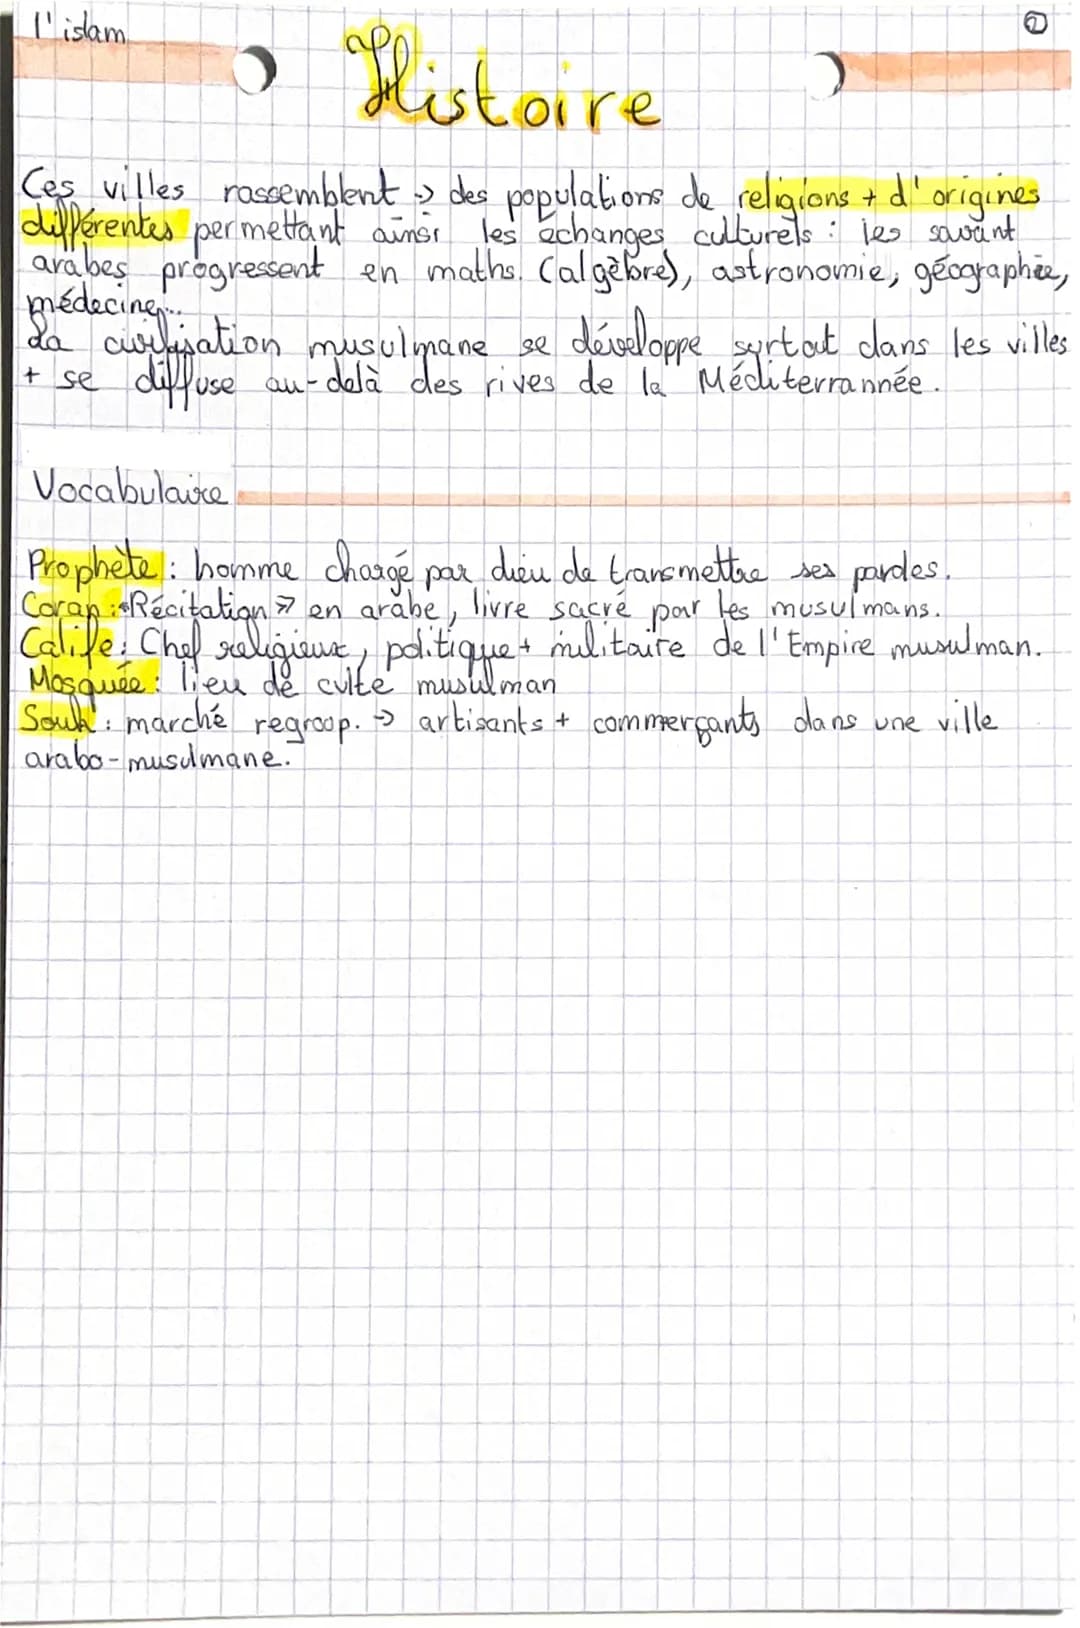 l'islam
②
Histoire
Ces villes rassemblent → des populations de religions + d'origines
différentes permettant ainsi les echanges culturels : les savant
arabes progressent en maths. (algèbre), astronomie, géographie,
médecine...
La civilisation musulmane se développe surtout dans les villes
+ se diffuse au-delà des rives de la Méditerrannée.
Vocabulaire
Prophète : homme chargé par dieu de transmettre ses paroles.
Coran : «Récitation» en arabe, livre sacré pour les musulmans.
Calife : Chef religieux, politique + militaire de l'Empire musulman.
Mosquée : lieu de culte musulman
Souk : marché regroup. → artisants + commerçants dans une ville
arabo-musulmane.